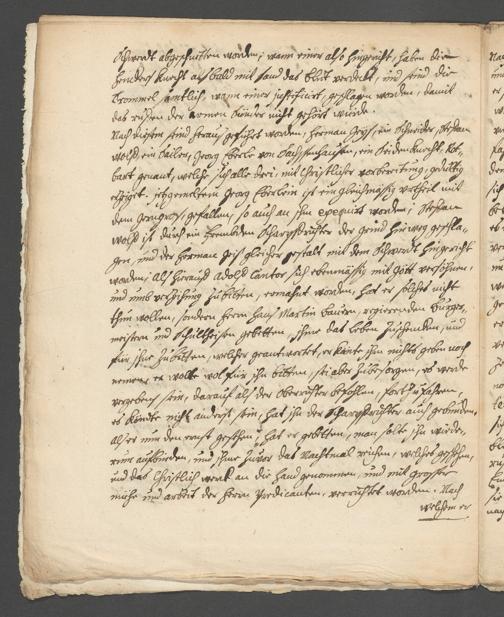 Schwerdt abgeschnitten worden; wann einer also hingericht, haben die
henckers knecht alsbald mit sand das blut verdekt, und sind die
Trommel, amtlich, wann einer justificirt, geschlagen worden, damit
das rüffen der armen Sünder nicht gehört würde.
Nach diesem sind heraus geführt worden, Herman Geiß, ein Schneider, Stephan
Wolff, ein Sailer, Georg Eberle von Sachssenhausen, ein Seidenknecht,
bart genant, welche sich alle drei, mit Christlicher vorbereitung, gedultig
erzeiget. jetzgemeltem Georg Eberlein ist ein gleichmäßig urtheil mit
dem Gerngros, gefallen, so auch an ihm exequirt worden; Stephan
Wolff ist durch ein frembden Scharpfrichter der grind hinweg geschla-
gen, und der Herman Geis gleicher gestalt mit dem Schwerdt hingericht
worden; Als hierauf Adolf Cantor sich ebenmäßig mit Gott versöhnen,
und umb verzeihung zubitten, ermahnt worden, hat er solches nicht
thun wollen, sondern herrn Hans Martin Bauern, regierenden Burger-
meistern und Schultheisen gebetten, ihme das leben zuschenken, und
für ihne zubitten, welcher geantwortet, er könte ihm nichts geben noch
nemen, er wolte wol für ihn bitten, sei aber zubesorgen, es werde
vergebens sein, darauf als der Oberrichter befohlen, fort zufahren,
es könte nicht anderst sein, hat ihn der scharpfrichter auch gebunden,
als er nun den ernst gesehen, hat er gebetten, man solte ihn wiede-
rum aufbinden, und ihme zuvor das Nachtmal reichen, welches geschehen,
und das Christlich werk an die hand genommen, und mit grosser
mühe und arbeit der herrn Predicanten, verrichtet worden. Nach
welchem er